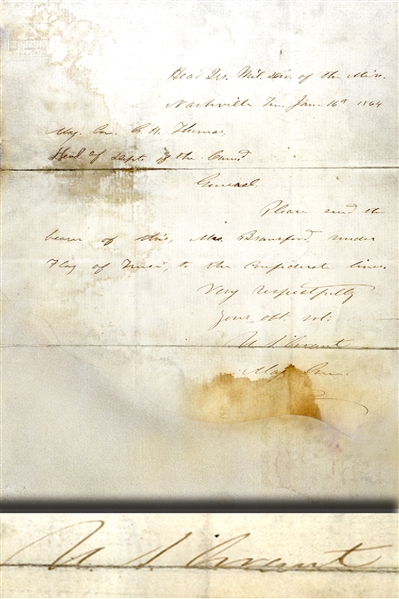 Head Qrs. Mil. Div. of the Miss.
Nashville Ten. Jan. 16th 1864
Maj. Gen. G. H. Thomas,
of the Cumd
General,
Please send the
bearer of this, Mrs. Bransford, under
Flag of Truce, to the Confederate lines.
Very respectfully
your obt. svt.
U. S. Grant
Maj. Gen.
U. S. Grant